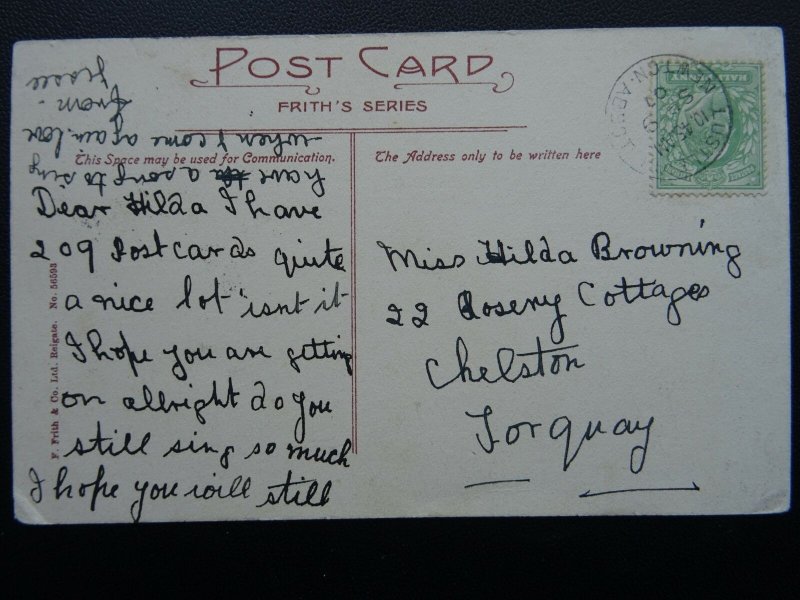 POST CARD
FRITH'S SERIES
This Space may be used for Communication.
The Address only to be written here
Dear Hilda I have
209 Postcards quite
a nice lot isnt it
I hope you are getting
on allright do you
still sing so much
I hope you will still
have a song to sing
when I come again. love
from.
Miss Hilda Browning
22 Rosery Cottages
Chelston
Torquay
F. Frith & Co. Ltd. Reigate. No. 56593
HALFPENNY